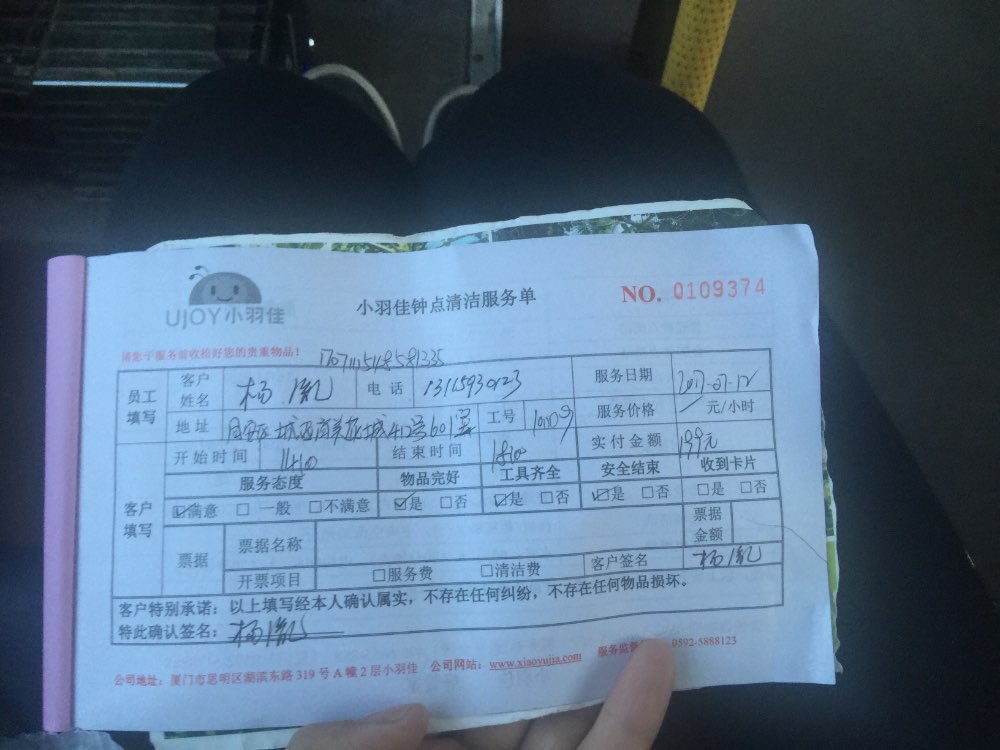 UJOY小羽佳
小羽佳钟点清洁服务单
NO. 0109374
请您于服务前收拾好您的贵重物品！
员工填写 客户姓名 杨 电话 服务日期 2017-07-12
地址 工号 服务价格 元/小时
开始时间 1410 结束时间 1810 实付金额 199元
客户填写 服务态度 物品完好 工具齐全 安全结束 收到卡片
☑满意 □一般 □不满意 ☑是 □否 ☑是 □否 ☑是 □否 □是 □否
票据 票据名称 票据金额
开票项目 □服务费 □清洁费 客户签名 杨
客户特别承诺：以上填写经本人确认属实，不存在任何纠纷，不存在任何物品损坏。
特此确认签名：杨
公司地址：厦门市思明区湖滨东路319号A幢2层小羽佳 公司网站：www.xiaoyujia.com 服务监督 0592-5888123